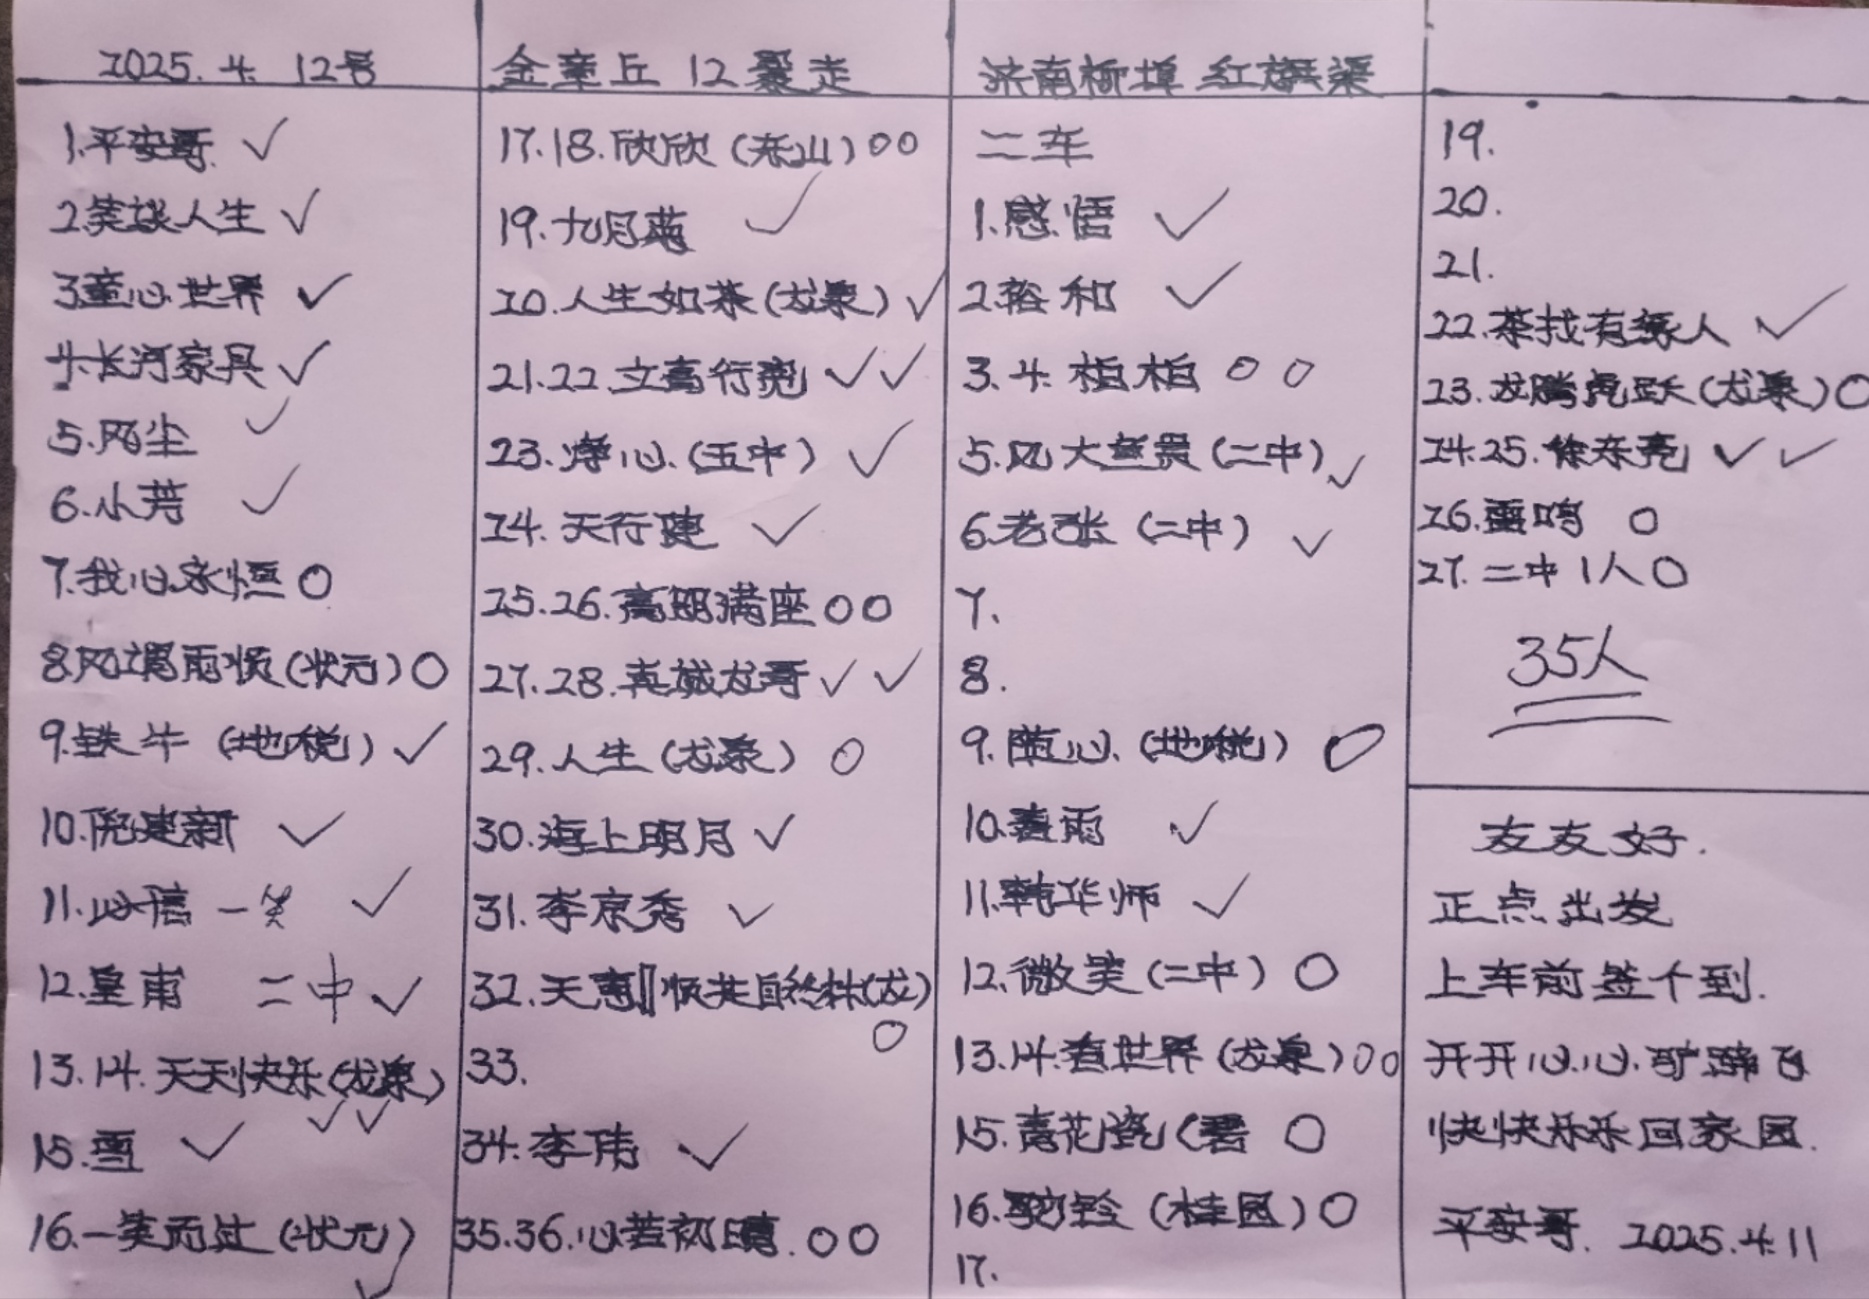 2025.4.12号
金章丘 12 暴走
济南柳埠 红旗渠
1.平安哥 ✓
2.笑谈人生 ✓
3.童心世界 ✓
4.长河家具 ✓
5.风尘 ✓
6.小芳 ✓
7.我心永恒 O
8.风调雨顺(状元) O
9.铁牛 (地税) ✓
10.倪建新 ✓
11.必信一笑 ✓
12.皇甫 二中 ✓
13.14.天天快乐(龙泉)
✓✓
15.雪 ✓
16.一笑而过(状元)
✓
17.18.欣欣(东山) OO
19.九月菊 ✓
20.人生如茶(龙泉) ✓
21.22.立高行亮 ✓✓
23.净心.(五中) ✓
24.天行健 ✓
25.26.高朋满座 OO
27.28.真诚龙哥 ✓✓
29.人生(龙泉) O
30.海上明月 ✓
31.李京秀 ✓
32.天惠 顺其自然林(龙)
O
33.
34.李伟 ✓
35.36.心若初晴. OO
二车
1.感悟 ✓
2.裕和 ✓
3.4.柏柏 O O
5.风大(二中) ✓
6.老张(二中) ✓
7.
8.
9.随心.(地税) O
10.春雨 ✓
11.韩华师 ✓
12.微笑(二中) O
13.14.看世界(龙泉) OO
15.青花瓷(碧 O
16.驼铃(桂园) O
17.
19.
20.
21.
22.茶找有缘人 ✓
23.龙腾虎跃(龙泉) O
24.25.徐东亮 ✓✓
26.雷鸣 O
27.二中1人 O
35人
友友好.
正点出发
上车前签个到.
开开心心.
快快乐乐回家园.
平安哥. 2025.4.11